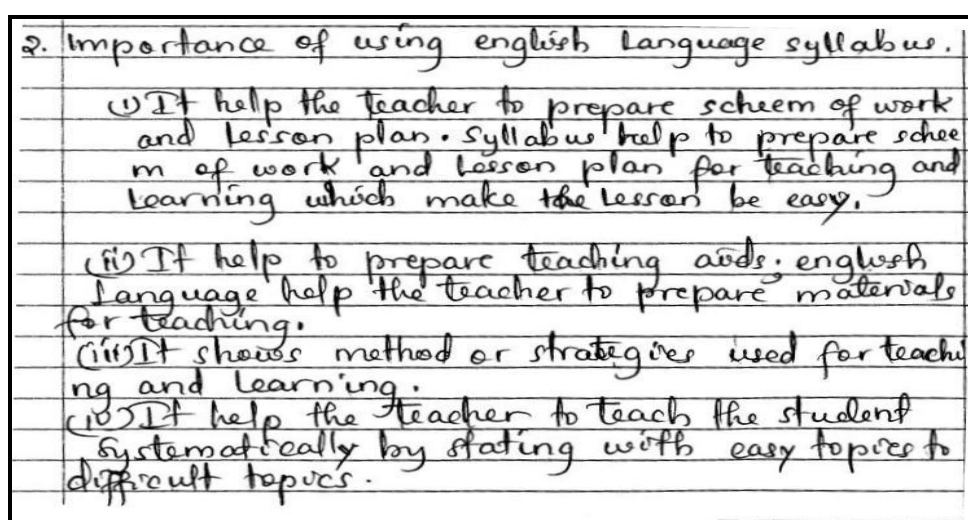 2. Importance of using english Language syllabus.
(i) It help the teacher to prepare scheem of work
and lesson plan. Syllabus help to prepare schee
m of work and Lesson plan for teaching and
Learning which make the Lesson be easy.
(ii) It help to prepare teaching aids. english
Language help the teacher to prepare materials
for teaching.
(iii) It shows method or strategies used for teachi
ng and Learning.
(iv) It help the teacher to teach the student
Systematically by stating with easy topics to
difficult topics.